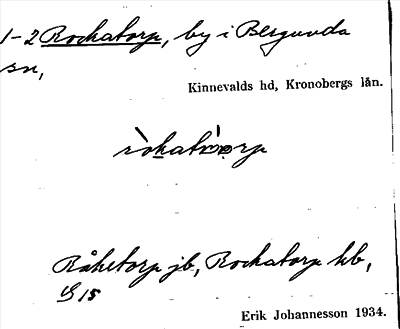 1-2 Rockatorp, by i Bergunda
sn,
Kinnevalds hd, Kronobergs län.
Råketorp jb, Rockatorp kb,
G 15
Erik Johannesson 1934.